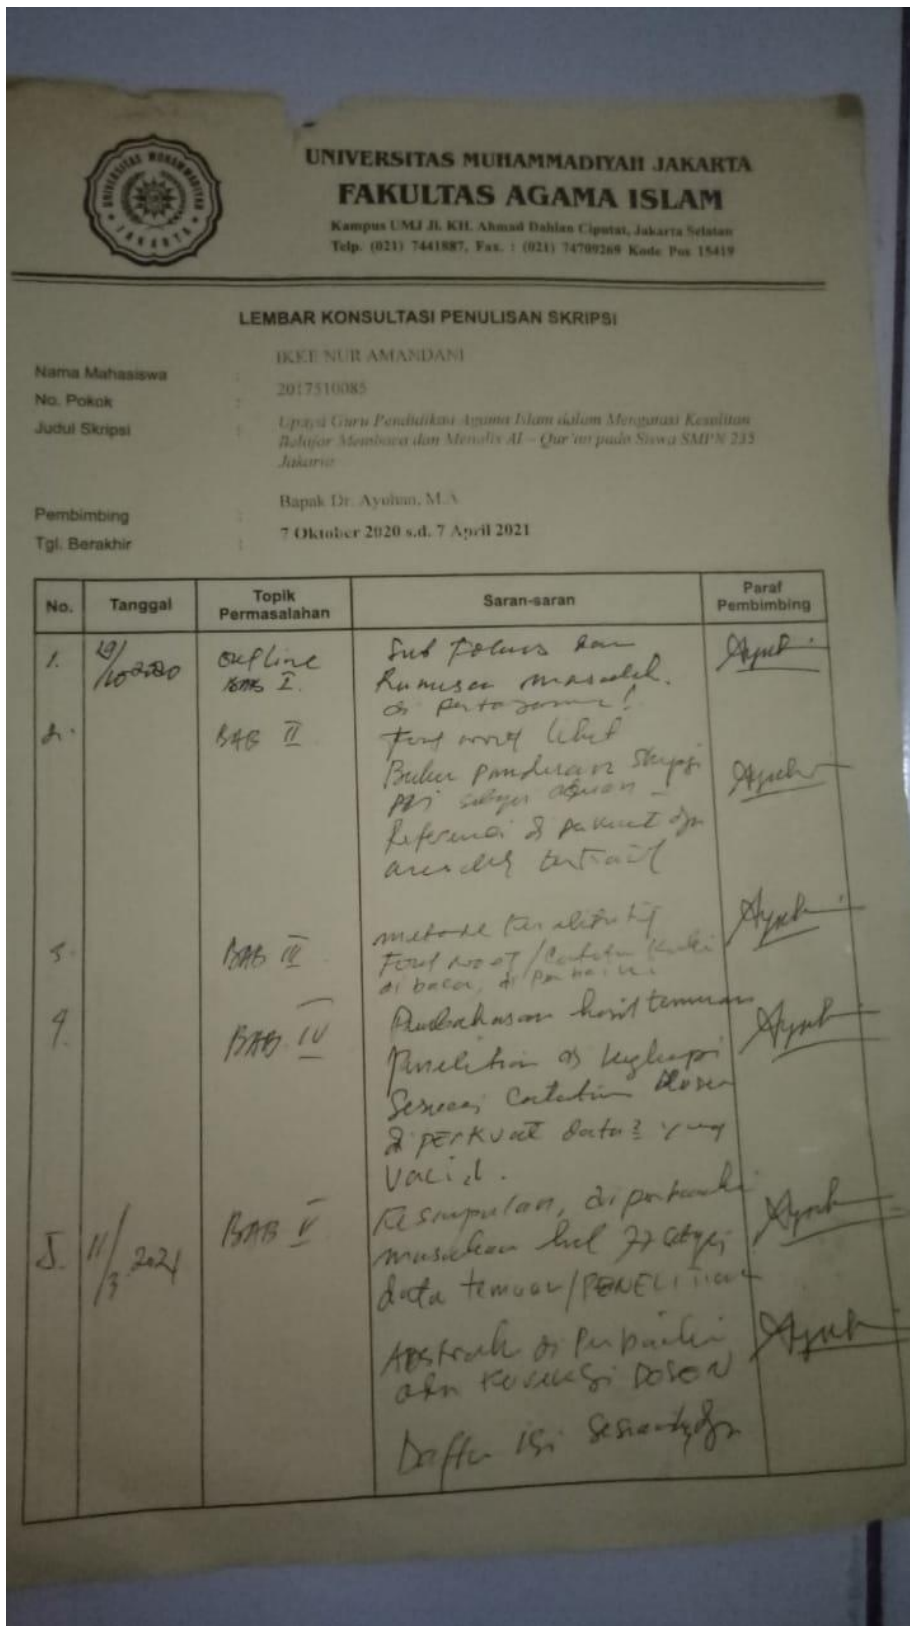 UNIVERSITAS MUHAMMADIYAH JAKARTA
FAKULTAS AGAMA ISLAM
Kampus UMJ Jl. KH. Ahmad Dahlan Ciputat, Jakarta Selatan
Telp. (021) 7441887, Fax. : (021) 74709269 Kode Pos 15419
UNIVERSITAS MUHAMMADIYAH
JAKARTA
LEMBAR KONSULTASI PENULISAN SKRIPSI
Nama Mahasiswa : IKKE NUR AMANDANI
No. Pokok : 2017510085
Judul Skripsi : Upaya Guru Pendidikan Agama Islam dalam Mengatasi Kesulitan
Belajar Membaca dan Menulis Al - Qur'an pada Siswa SMPN 235
Jakarta
Pembimbing : Bapak Dr. Ayuhan, M.A
Tgl. Berakhir : 7 Oktober 2020 s.d. 7 April 2021
No. Tanggal Topik Permasalahan Saran-saran Paraf Pembimbing
1. 19/10 2020 outline Sub Fokus dan
BAB I. Rumusan masalah.
di !
2. BAB II Foot lihat
Buku panduan Skripsi
sebagai acuan -
Referensi di
terkait
3. BAB III metode
Foot / Catatan kaki
di baca, di
4. BAB IV Pembahasan hasil temuan
Penelitian di lengkapi
Sesuai Catatan Dosen
di perkuat data2 yang
valid.
5. 11/3 2021 BAB V Kesimpulan, di
masukan hal 77
data temuan/PENELITIAN
Abstrak di Perbaiki
Koreksi DOSEN
Daftar isi